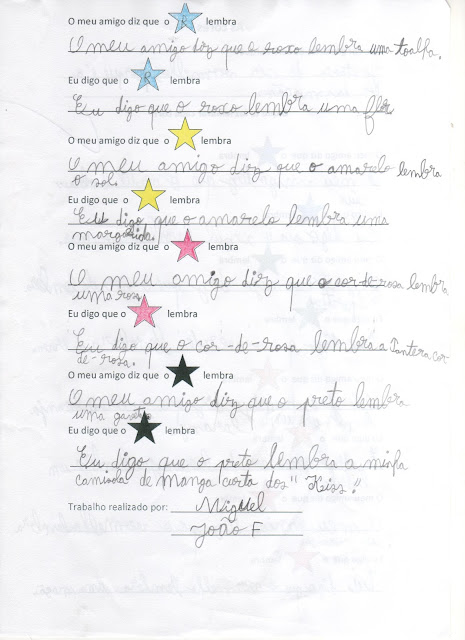 O meu amigo diz que o R lembra
O meu amigo diz que o roxo lembra uma toalha.
Eu digo que o R lembra
Eu digo que o roxo lembra uma flor
O meu amigo diz que o lembra
O meu amigo diz que o amarelo lembra
o sol.
Eu digo que o lembra
Eu digo que o amarelo lembra uma
margarida.
O meu amigo diz que o lembra
O meu amigo diz que o cor-de-rosa lembra
uma rosa.
Eu digo que o lembra
Eu digo que o cor-de-rosa lembra a Pantera cor-
de-rosa.
O meu amigo diz que o lembra
O meu amigo diz que o preto lembra
uma
Eu digo que o lembra
Eu digo que o preto lembra a minha
camisola de manga curta dos "Kiss".
Trabalho realizado por: Miguel
João F